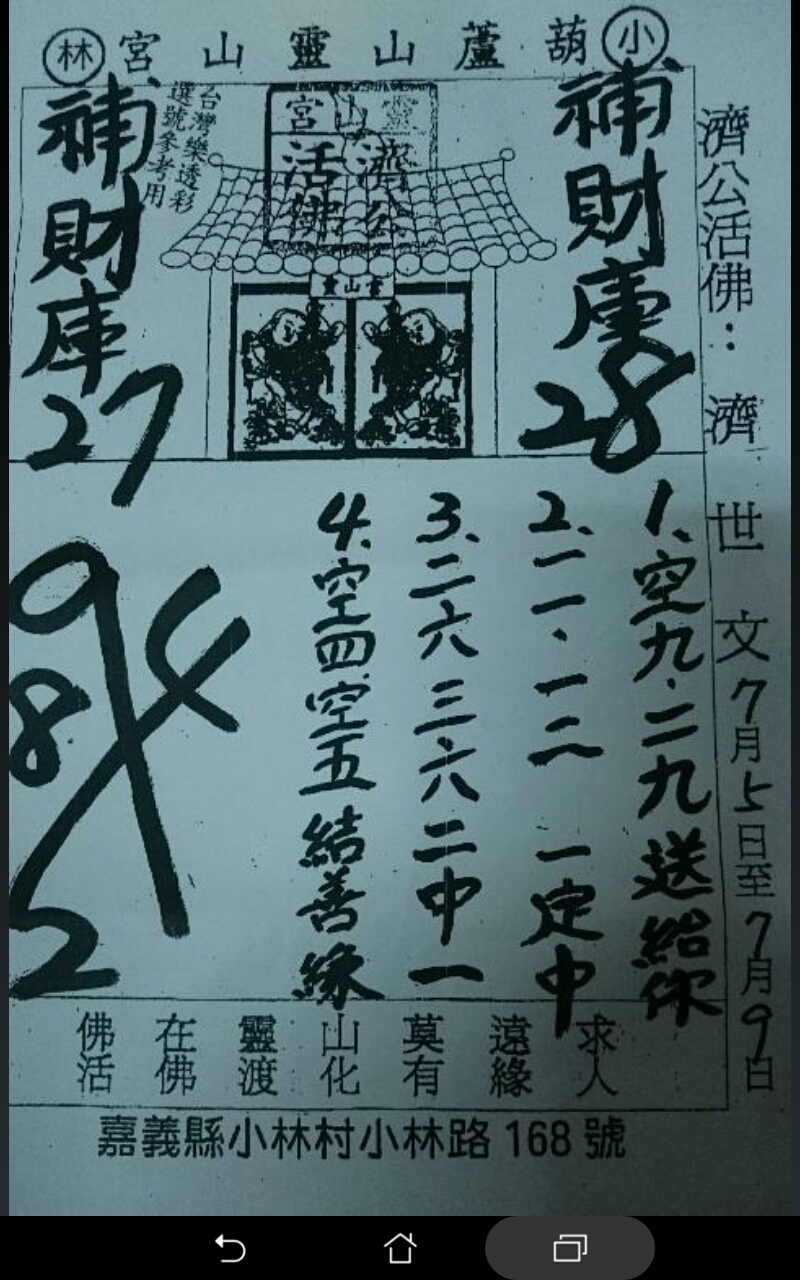 小 葫蘆山靈山宮 林
濟公活佛：濟世文 7月5日至7月9日
補財庫 28
靈山宮
濟公
活佛
靈山宮
台灣樂透彩
選號參考用
補財庫 27
1、空九.二九送給你
2、一一、一二 一定中
3、二六三六二中一
4、空四空五結善緣
9 4
8 2
求人
遠緣
莫有
山化
靈渡
在佛
佛活
嘉義縣小林村小林路168號